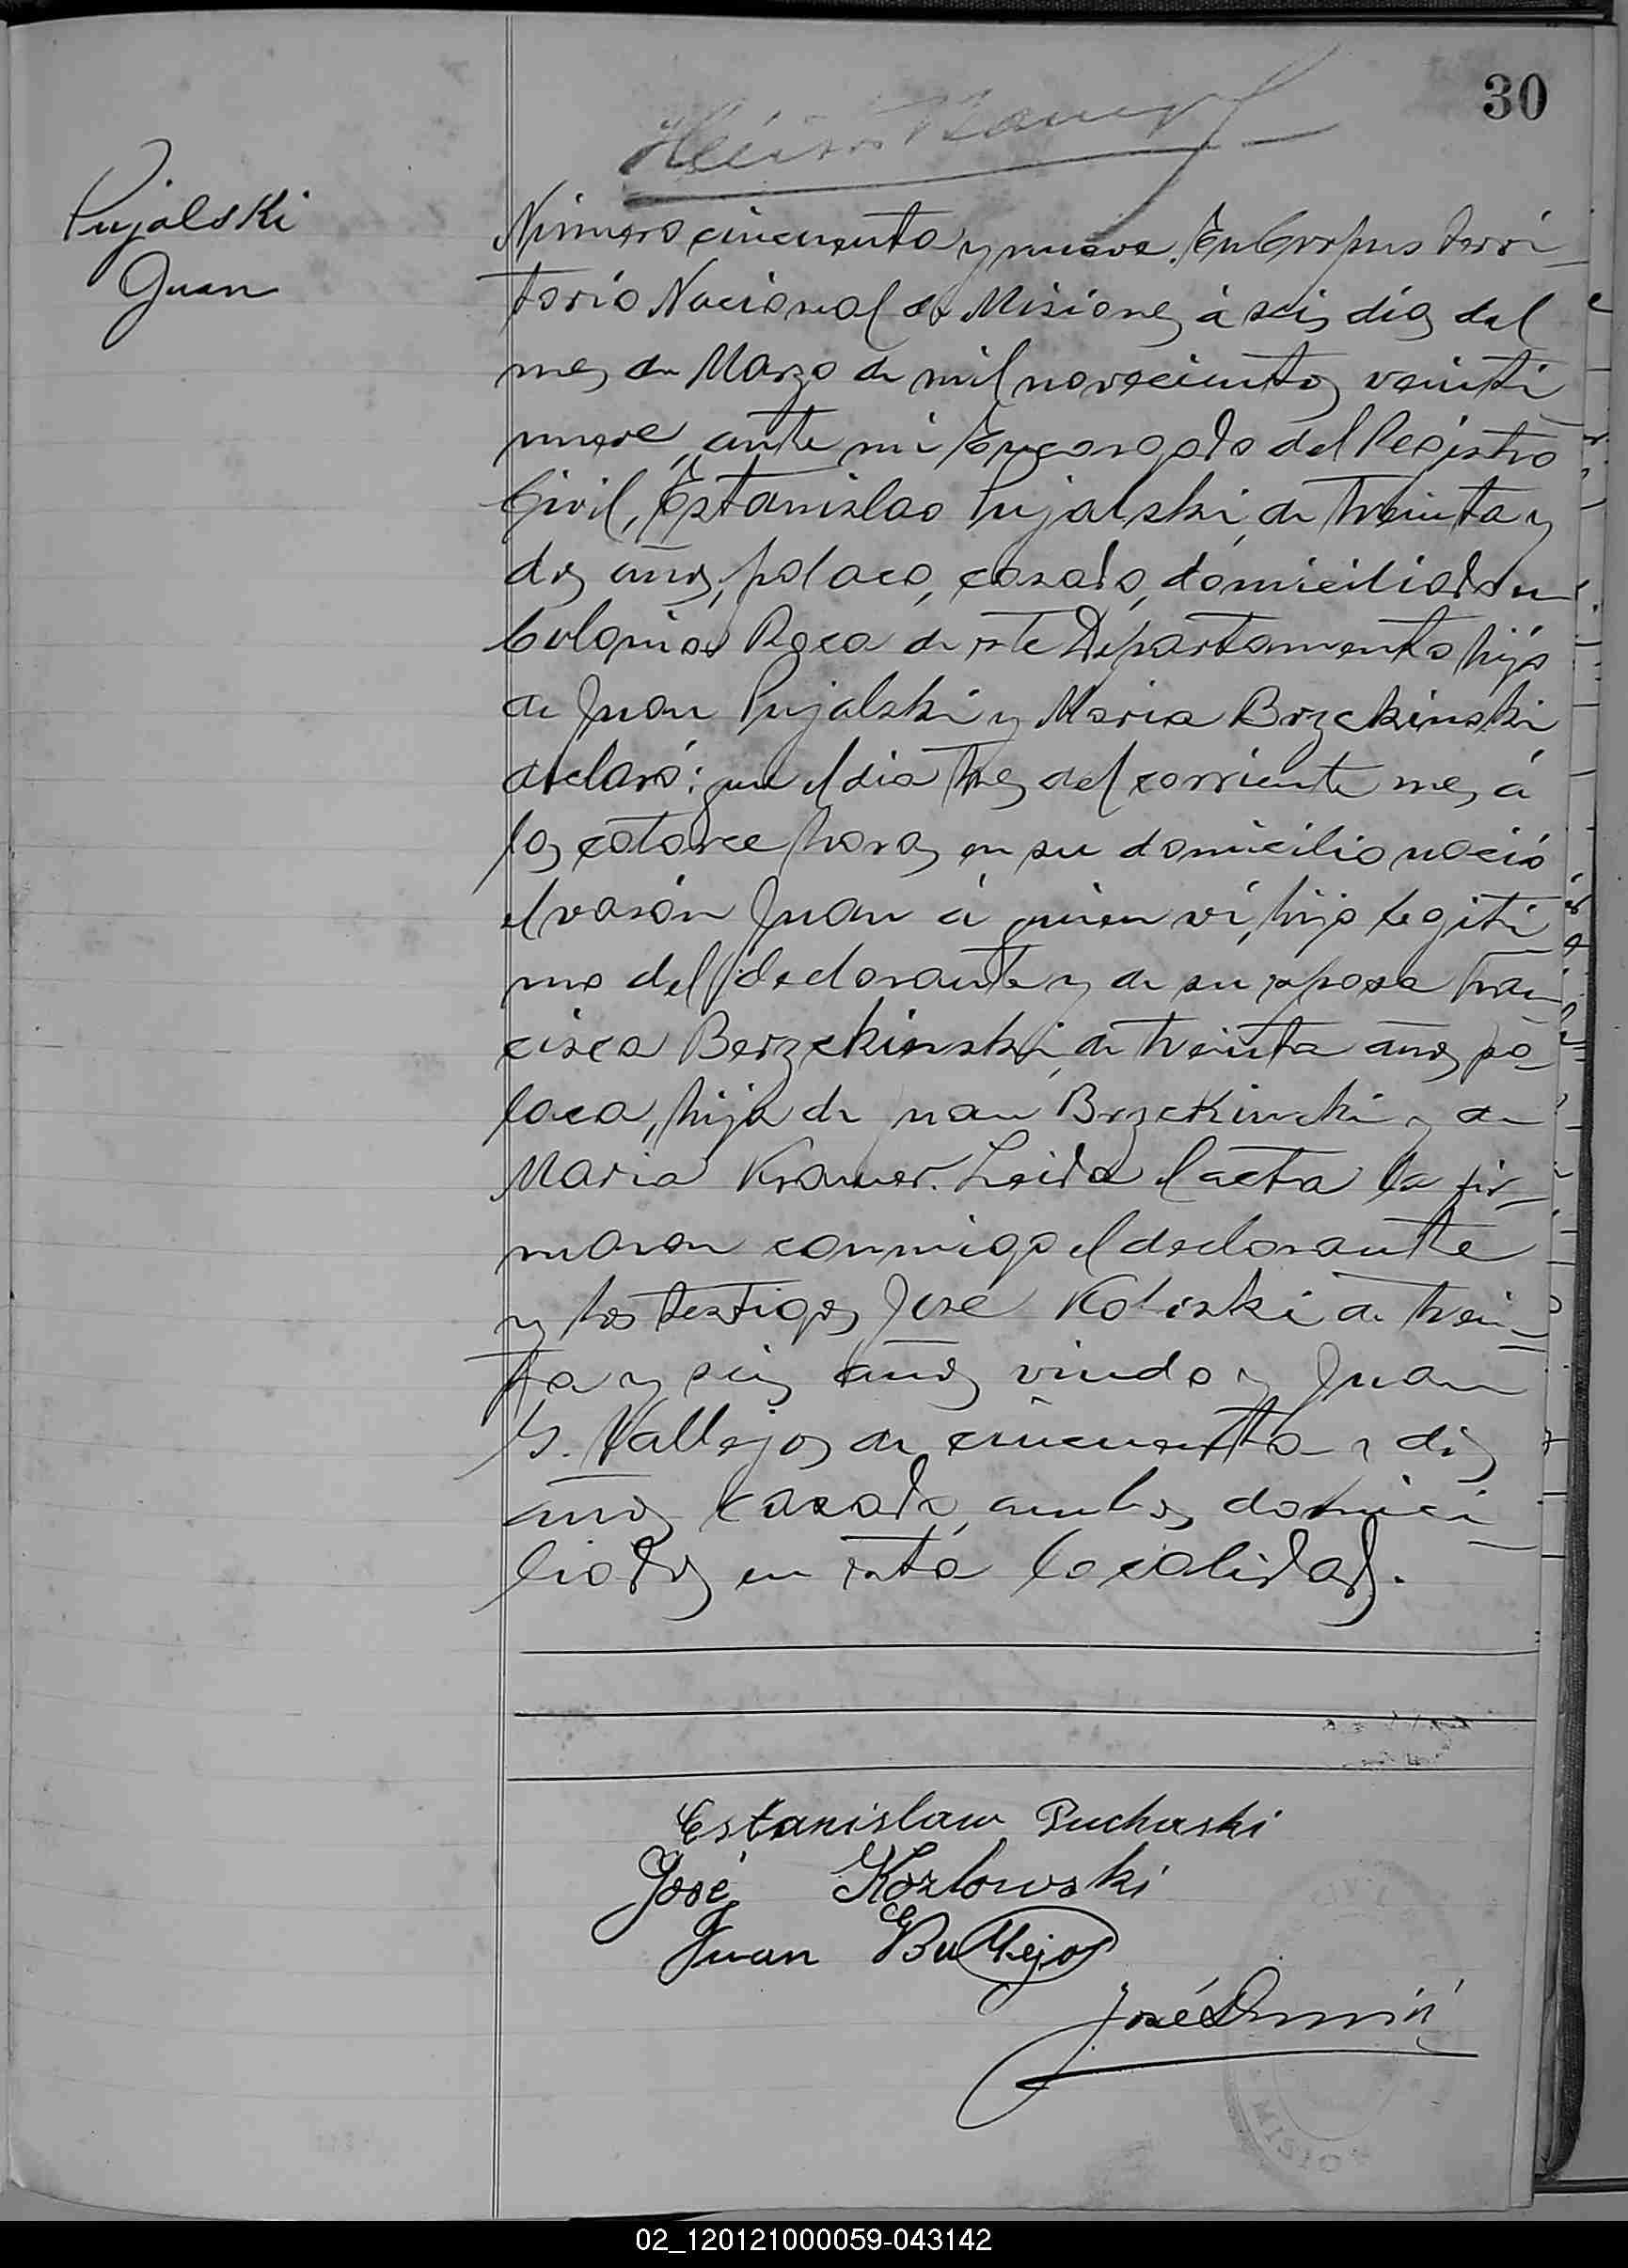 30
Pujalski
Juan
Número cincuenta y nueve. En Corpus terri-
torio Nacional de Misiones á seis dias del
mes de Marzo de mil novecientos veinti
nueve, ante mi Encargado del Registro
Civil, Estanislao Pujalski, de treinta y
dos años, polaco, casado, domiciliado en
Colonia Roca de este Departamento hijo
de Juan Pujalski y Maria Brzckinski
declaró: que el dia tres del corriente mes á
las catorce horas en su domicilio nació
el varón Juan á quien ví, hijo legiti
mo del declarante y de su esposa Fran
cisca Berzckinski, de treinta años po-
laca, hija de Juan Brzckinski y de
Maria Kramer. Leida el acta la fir-
maron conmigo el declarante
y los testigos José Koliski de trein-
ta y seis años viudo y Juan
G. Vallejos de cincuenta y dos
años casado, ambos domici-
liados en esta localidad.
Estanislaw Puchaski
José Kozlowski
Juan G Vallejos
José
MISIO
02_120121000059-043142